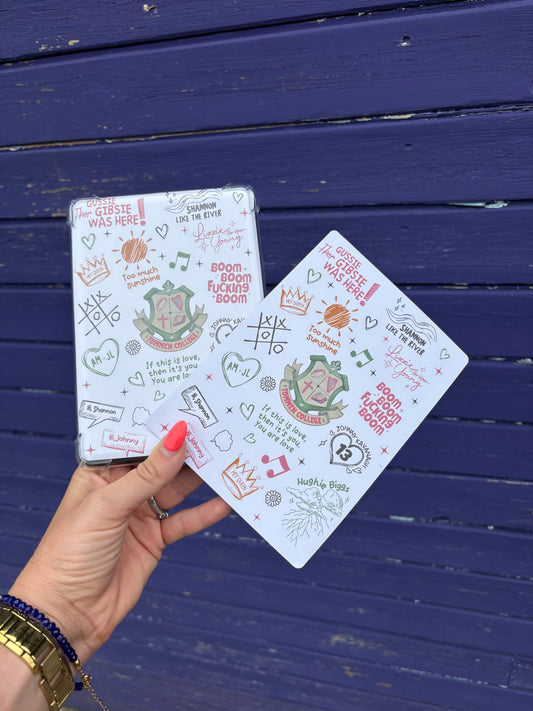 GUSSIE
Thor GIBSIE
WAS HERE!
SHANNON
LIKE THE RIVER
Lizzie
Young
HEY QUEEN
Too much
Sunshine
BOOM
BOOM
FUCKING
BOOM
TOMMEN COLLEGE
AM + JL
JOHNNY
If this is love,
then it's you
You are lo
Hi, Shannon
Hi, Johnny
GUSSIE
Thor GIBSIE
WAS HERE!
HEY QUEEN
Too much
Sunshine
SHANNON
LIKE THE RIVER
Lizzie
Young
AM + JL
TOMMEN COLLEGE
BOOM
BOOM
FUCKING
BOOM
If this is love,
then it's you.
You are love
JOHNNY KAVANAGH
13
Hi, Shannon
Hi, Johnny
HEY QUEEN
Hughie Biggs